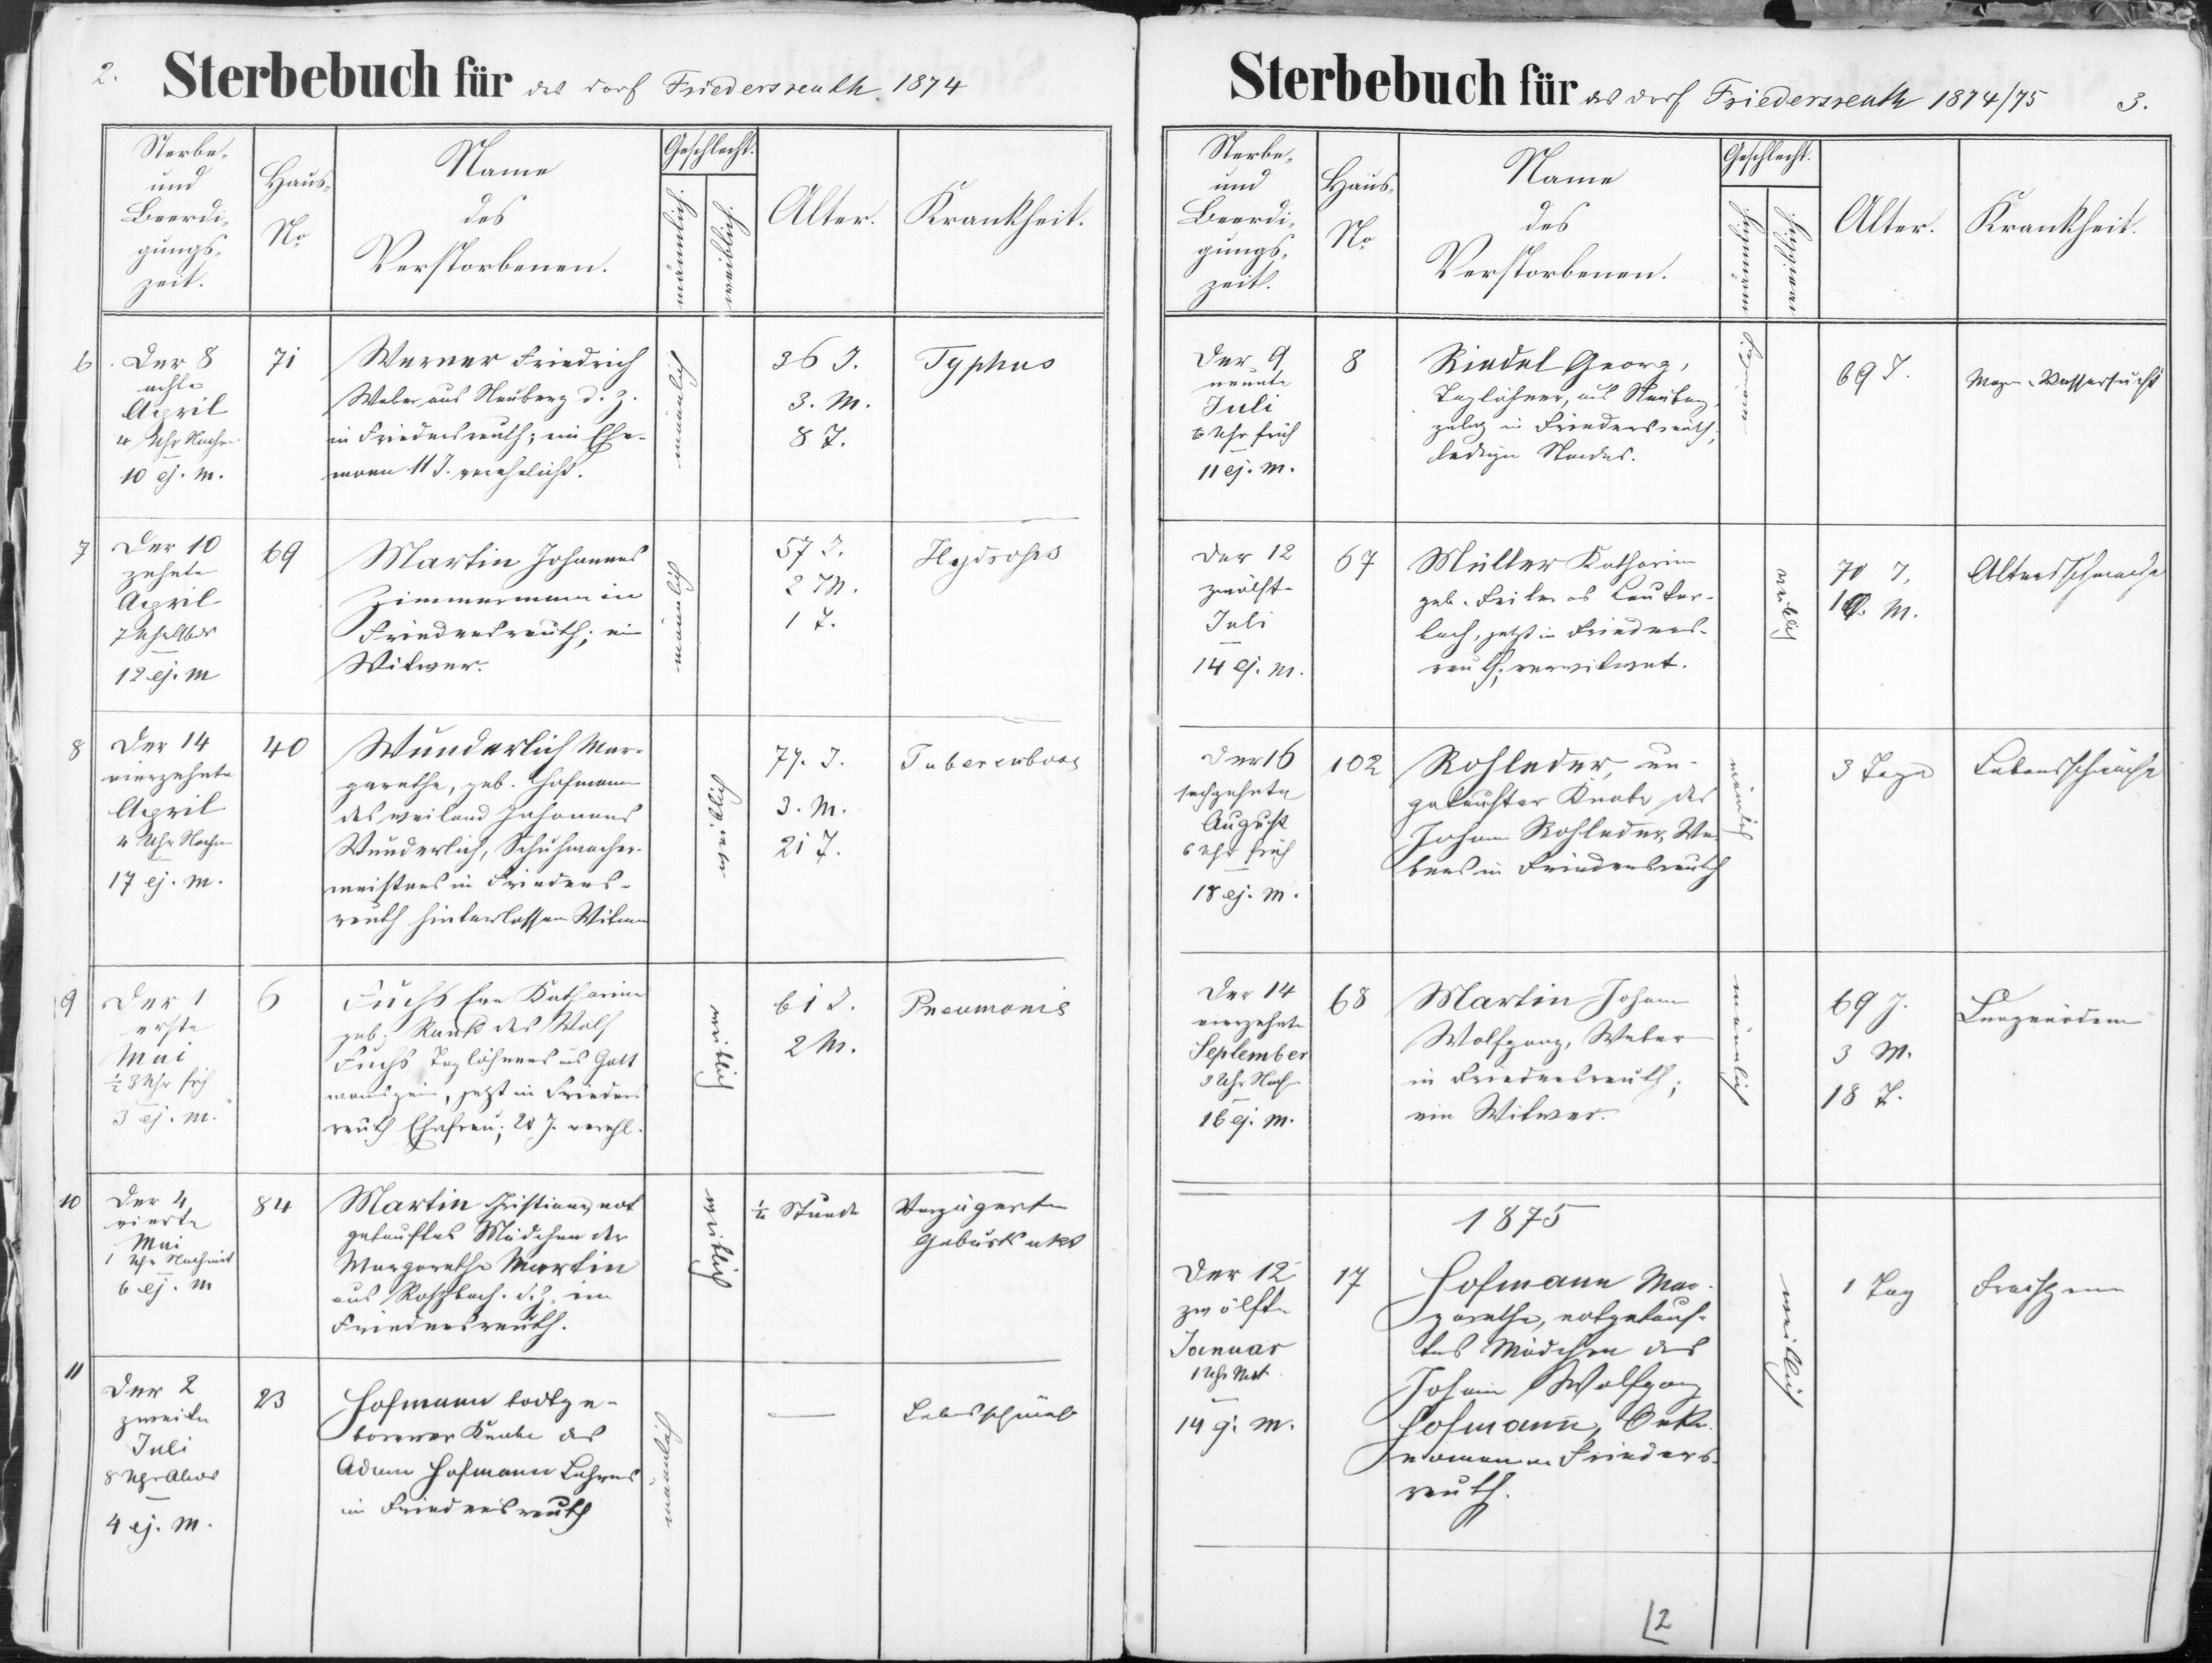 2.
Sterbebuch für das Dorf Friedersreuth 1874
Sterbe-
und
Beerdi-
gungs-
zeit.
Haus-
No
Name
des
Verstorbenen.
Geschlecht.
männlich.
weiblich.
Alter.
Krankheit.
6
Der 8
achte
April
4 Uhr Nachm
10 ej. m.
71
Werner Friedrich
Weber aus Neuberg d. z.
in Friedersreuth; ein Ehe-
mann 11 J. verehelicht.
männlich
36 J.
3. M.
8 T.
Typhus
7
Der 10
zehnte
April
12 ej. m
69
Martin Johannes
Zimmermann in
Friedersreuth; ein
Witwer.
männlich
57 J.
2 M.
1 T.
Hydrops
8
Der 14
vierzehnte
April
4 Uhr Nachm
17 ej. m.
40
Wunderlich Mar-
garethe, geb. Hofmann
des weiland Johannes
Wunderlich, Schuhmacher-
meisters in Frieders-
reuth hinterlassene Witwe
weiblich
77. J.
3. M.
21 T.
9
Der 1
erste
Mai
½ 3 Uhr früh
3 ej. m.
6
Fuchs Eva Katharina
geb. des Wolf
Fuchs Taglöhners aus Gott
mannsgrün, jetzt in Frieders
reuth Ehefrau; 28 J. verehl.
weiblich
61 J.
2 M.
Pneumonie
10
Der 4
vierte
Mai
1 Uhr Nachmit
6 ej. m
84
Martin Christiane, not
getauftes Mädchen der
Margarethe Martin
aus Roßbach. d. z. in
Friedersreuth.
weiblich
¼ Stunde
Verzögerter
Geburtsakt
11
Der 2
zweite
Juli
8 Uhr Abds
4 ej. m.
23
Hofmann todtge-
borener Knabe des
Adam Hofmann
in Friedersreuth
männlich
—
Lebensschwäche
Sterbebuch für das Dorf Friedersreuth 1874/75
3.
Sterbe-
und
Beerdi-
gungs-
zeit.
Haus-
No
Name
des
Verstorbenen.
Geschlecht.
männlich.
weiblich.
Alter.
Krankheit.
Der 9
neunte
Juli
6 Uhr früh
11 ej. m.
8
Riedel Georg,
Taglöhner, aus Neuberg,
in Friedersreuth,
ledigen Standes.
männlich
69 J.
Wassersucht
Der 12
zwölfte
Juli
14 ej. m.
67
Müller Katharina
geb. Feiler aus Lauter-
bach, jetzt in Frieders-
reuth; verwitwet.
weiblich
70 J.
10. M.
Altersschwäche
Der 16
sechzehnte
August
6 Uhr früh
18 ej. m.
102
Rohleder, un-
getaufter Knabe des
Johann Rohleder, We-
bers in Friedersreuth
männlich
3 Tage
Lebensschwäche
Der 14
vierzehnte
September
3 Uhr Nachm
16 ej. m.
68
Martin Johann
Wolfgang, Weber
in Friedersreuth;
ein Witwer.
männlich
69 J.
3 M.
18 T.
Lungenödem
1875
Der 12
zwölfte
Januar
14 ej. m.
17
Hofmann Mar-
garethe, notgetauf-
tes Mädchen des
Johann Wolfgang
Hofmann, Oeko-
nomen in Frieders-
reuth.
weiblich
1 Tag
2